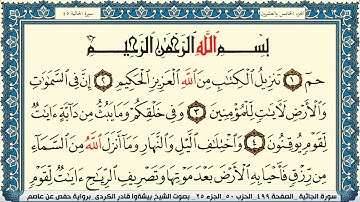 الجزء الخامس والعشرون
سورة الجاثية ٤٥
بِسْمِ اللَّهِ الرَّحْمَٰنِ الرَّحِيمِ
حمٓ ١ تَنزِيلُ الْكِتَٰبِ مِنَ اللَّهِ الْعَزِيزِ الْحَكِيمِ ٢ إِنَّ فِي السَّمَٰوَٰتِ
وَالْأَرْضِ لَءَايَٰتٍ لِّلْمُؤْمِنِينَ ٣ وَفِي خَلْقِكُمْ وَمَا يَبُثُّ مِن دَآبَّةٍ ءَايَٰتٌ
لِّقَوْمٍ يُوقِنُونَ ٤ وَاخْتِلَٰفِ الَّيْلِ وَالنَّهَارِ وَمَآ أَنزَلَ اللَّهُ مِنَ السَّمَآءِ
مِن رِّزْقٍ فَأَحْيَا بِهِ الْأَرْضَ بَعْدَ مَوْتِهَا وَتَصْرِيفِ الرِّيَٰحِ ءَايَٰتٌ لِّقَوْمٍ
سورة الجاثية _ الصفحة ٤٩٩ _ الحزب ٥٠ _ الجزء ٢٥ _ بصوت الشيخ بيشةوا قادر الكردي _ برواية حفص عن عاصم